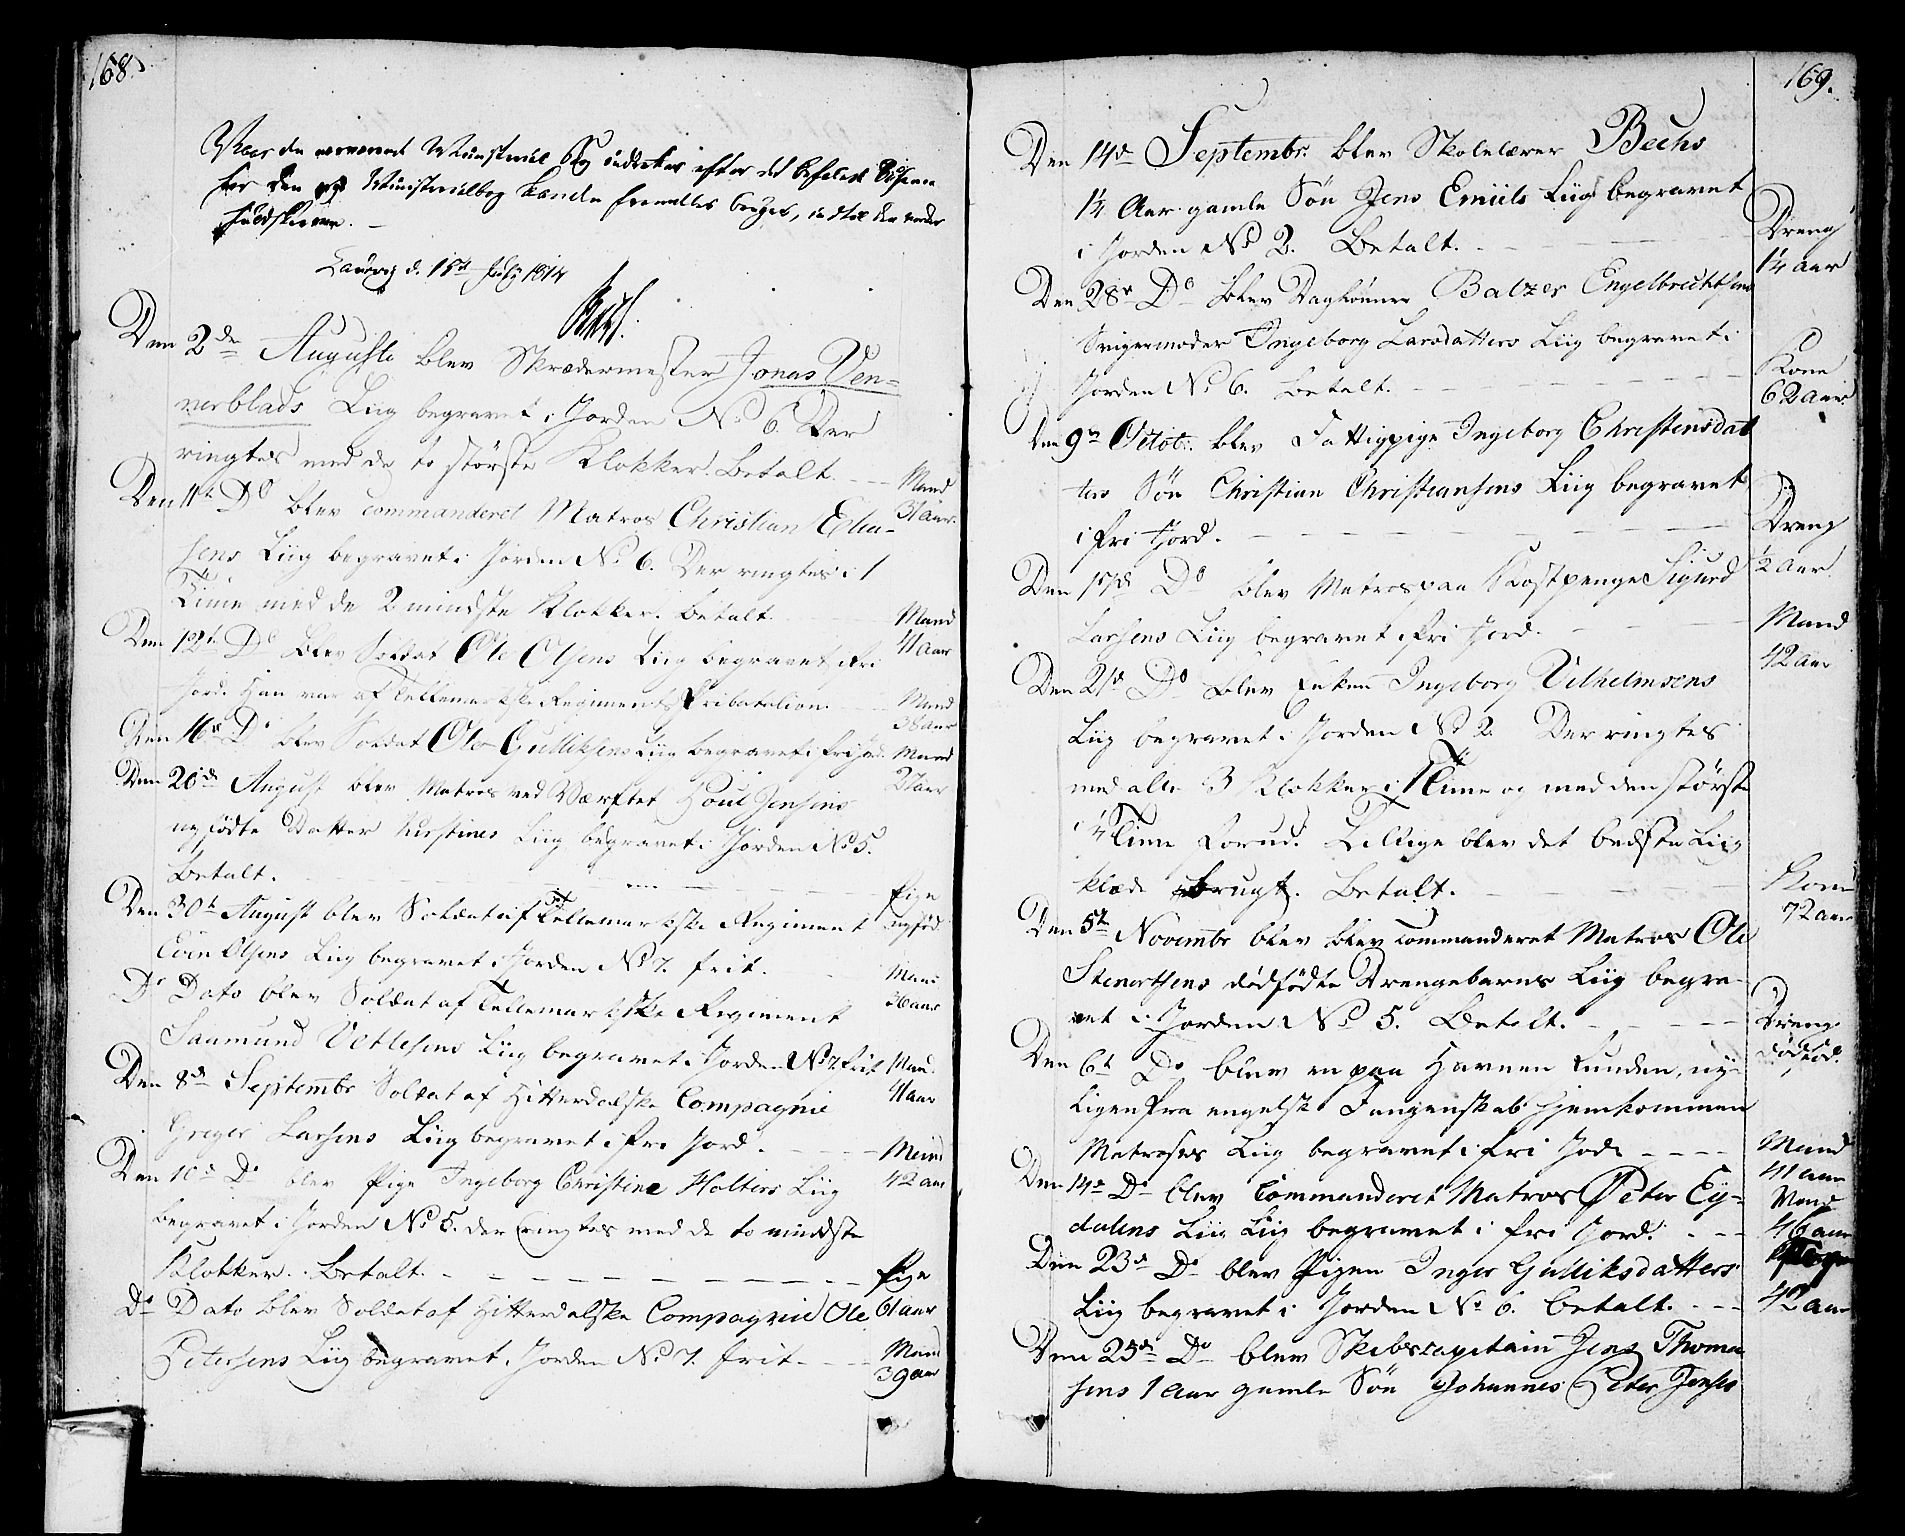 168.
Laurvig d. 15de July 1814
Den 2den Augusti blev Skrædermester Jonas Ven-
nerblads Liig begravet i Jorden No 6. Der
ringtes med de to störste Klokker. Betalt. Mand
Den 11te Do blev commanderet Matros Christian Elia- 31 aar.
sens Liig begravet i Jorden No 6. Der ringtes i 1
Time med de 2 mindste Klokker. betalt. Mand
Den 12te Do blev Soldat Ole Olsens Liig begravet i fri 41 aar
Jord. Han var af Tellemarkske Regiments Mand
38 aar
Den 16de Do blev Soldat Ole Gulliksens Liig begravet i fri Jord. Mand
Den 26de August blev Matros ved Værftet Poul Jensens 27 aar
nyfödte Datter Kirstines Liig begravet i Jorden No 5.
Betalt. Pige
Den 30te August blev Soldat af Tellemarkske Regiment nyföd.
Even Olsens Liig begravet i Jorden No 7. frit. Mand
Do Dato blev Soldat af Tellemarkske Regiment 36 aar
Saamund Vetlesens Liig begravet i Jorden No 7. frit Mand
Den 8de Septembr Soldat af Hitterdalske Compagnie 41 aar
Greger Larsens Liig begravet i fri Jord. Mand
Den 10de Do blev Pige Ingeborg Christine Holters Liig 42 aar
begravet i Jorden No 5. der ringtes med de to mindste
Klokker. Betalt. Pige
Do Dato blev Soldat af Hitterdalske Compagnie Ole 61 aar
Petersens Liig begravet i Jorden No 7. frit. Mand
39 aar
169.
Den 14de Septembr. blev Skolelærer Bechs
1/4 Aar gamle Sön Jens Emiils Liig begravet
i Jorden No 2. Betalt. Dreng
1/4 aar
Den 28de Do blev Daglönner Balzer Engelbrechtsens
Svigermoder Ingeborg Larsdatters Liig begravet i
Jorden No 6. betalt. Kone
62 aar
Den 9de Octobr. blev Fattigpige Ingeborg Christensdat
ters Sön Christian Christiansens Liig begravet
i fri Jord. Dreng
Den 17de Do blev Matros paa Kostpenge Sigurd 1/2 aar.
Larsens Liig begravet i fri Jord. Mand
42 aar
Den 21de Do blev Enken Ingeborg Vilhelmsens
Liig begravet i Jorden No 2. Der ringtes
med alle 3 Klokker i 1 Time og med den störste
i 1/4 Time forud. Tillige blev det bedste Liig
klæde brugt. Betalt. Kone
72 aar
Den 5te Novembr blev blev commanderet Matros Ole
Stenersens dödfödte Drengebarns Liig begra-
vet i Jorden No 5. Betalt. Dreng
dödföd.
Den 6te Do blev en paa Havnen funden, ny-
ligen fra engelsk Fangenskab hjemkommen
Matroses Liig begravet i fri Jord Mand
41 aar
Den 14de Do blev Commanderet Matros Peter Ey- Mand
dalens Liig Liig begravet i fri Jord. 46 aar
Den 23de Do blev Pigen Inger Gulliksdatters Pige
Liig begravet i Jorden No 6. betalt. 42 aar
Den 25de Do blev Skibscapitain Jens Thoma
sens 1 Aar gamle Sön Johannes Peter Jenses